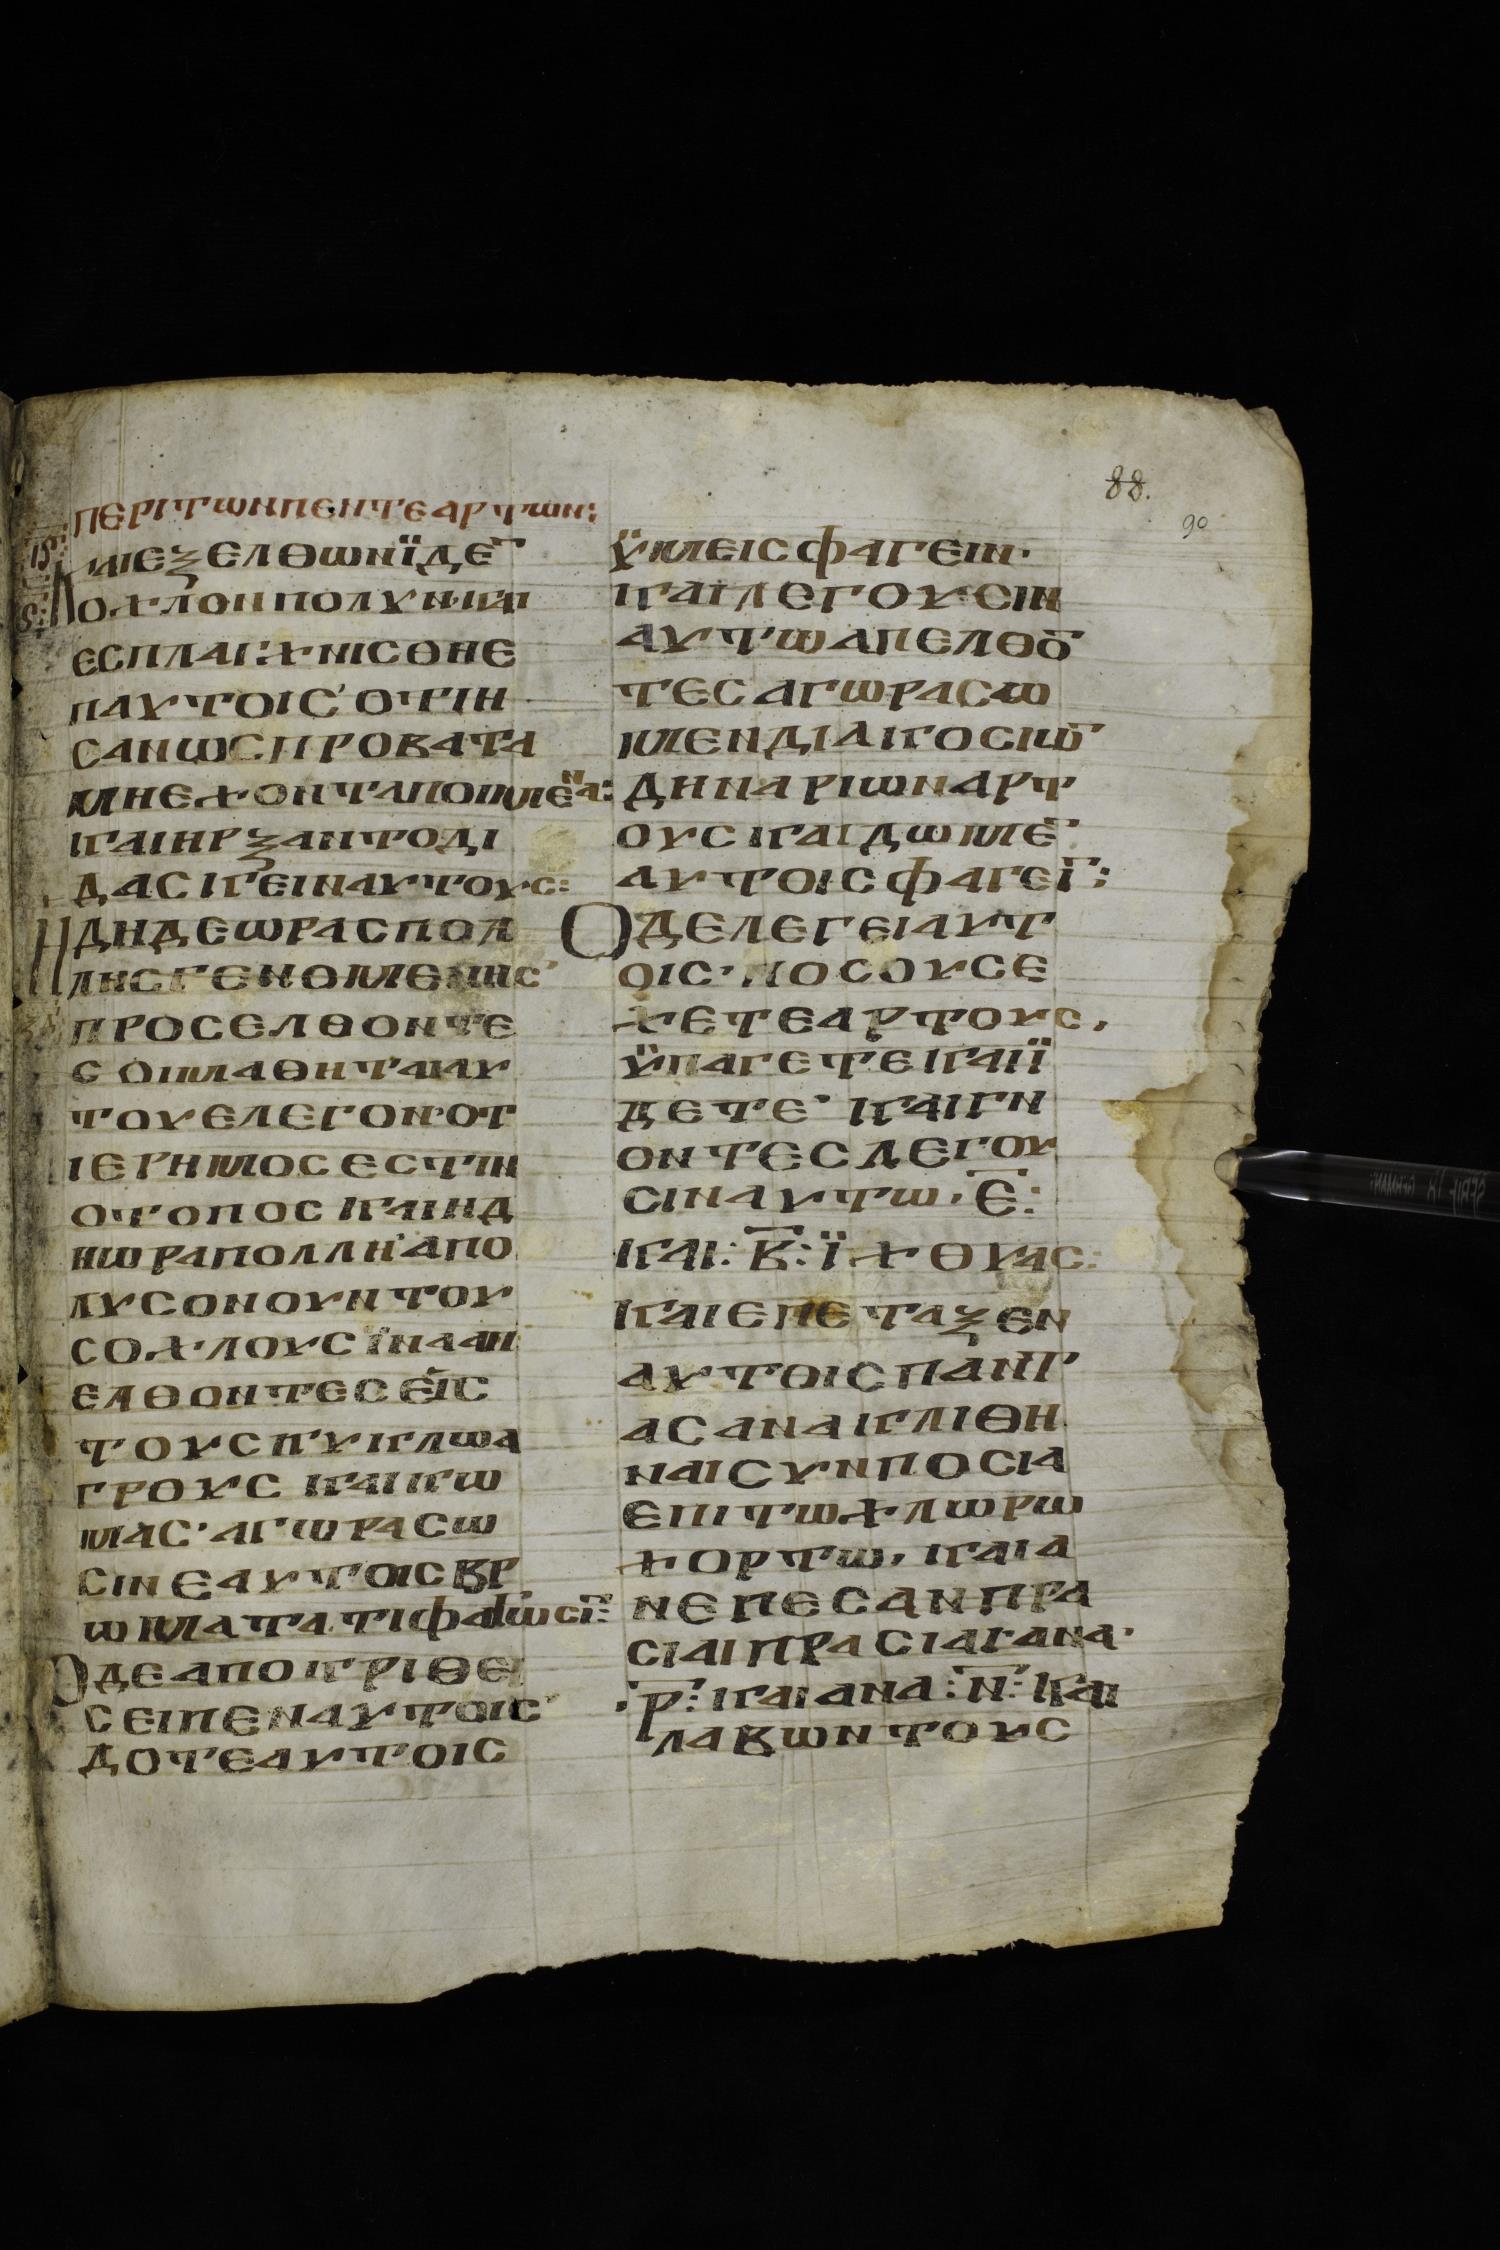 88.
90
ΠΕΡΙΤωΝΠΕΝΤΕΑΡΤωΝ:
ΙϚ:
ΚΑΙΕΞΕΛΘωΝΪΔΕ̅
ΟΧΛΟΝΠΟΛΥΝ·ΚΑΙ
ΕСΠΛΑΓΧΝΙСΘΗΕ
ΠΑΥΤΟΙС ΟΤΙΗ
СΑΝωСΠΡΟΒΑΤΑ
ΜΗΕΧΟΝΤΑΠΟΙΜΕΝΑ:
ΚΑΙΗΡΞΑΝΤΟΔΙ
ΔΑСΚΕΙΝΑΥΤΟΥС:
ΗΔΗΔΕωΡΑСΠΟΛ
ΛΗСΓΕΝΟΜΕΝΗС
ΠΡΟСΕΛΘΟΝΤΕ
СΟΙΜΑΘΗΤΑΙΑΥ
ΤΟΥΕΛΕΓΟΝ·ΟΤ
ΙΕΡΗΜΟСΕСΤΙΝ
ΟΤΟΠΟСΚΑΙΗΔ
ΗωΡΑΠΟΛΛΗ ΑΠΟ
ΛΥСΟΝΟΥΝΤΟΥ
СΟΧΛΟΥСΪΝΑΑΠ
ΕΛΘΟΝΤΕСΕΙС
ΤΟΥСΠΥΚΛωΑ
ΓΡΟΥСΚΑΙΚω
ΜΑС·ΑΓωΡΑСω
СΙΝΕΑΥΤΟΙСΒΡ
ωΜΑΤΑΤΙΦΑΓωСΙ̅:
ΟΔΕΑΠΟΚΡΙΘΕΙ
СΕΙΠΕΝΑΥΤΟΙС
ΔΟΤΕΑΥΤΟΙС
ΫΜΕΙСΦΑΓΕΙΝ·
ΚΑΙΛΕΓΟΥСΙΝ
ΑΥΤωΑΠΕΛΘΟ̅
ΤΕСΑΓωΡΑСω
ΜΕΝΔΙΑΚΟСΙω̅
ΔΗΝΑΡΙωΝΑΡΤ
ΟΥСΚΑΙΔωΜΕ̅
ΑΥΤΟΙСΦΑΓΕΙ̅:
ΟΔΕΛΕΓΕΙΑΥΤ
ΟΙС·ΠΟСΟΥСΕ
ΧΕΤΕΑΡΤΟΥС,
ΫΠΑΓΕΤΕΚΑΙΪ
ΔΕΤΕ ΚΑΙΓΝ
ΟΝΤΕСΛΕΓΟΥ
СΙΝΑΥΤω, Ε̅:
ΚΑΙ: Β̅: ΪΧΘΥΑС:
ΚΑΙΕΠΕΤΑΞΕΝ
ΑΥΤΟΙСΠΑΝΤ
ΑСΑΝΑΚΛΙΘΗ
ΝΑΙСΥΝΠΟСΙΑ
ΕΠΙΤωΧΛωΡω
ΧΟΡΤω, ΚΑΙΑ
ΝΕΠΕСΑΝΠΡΑ
СΙΑΙΠΡΑСΙΑΙΑΝΑ·
:Ρ̅: ΚΑΙΑΝΑ: Ν̅: ΚΑΙ
ΛΑΒωΝΤΟΥС